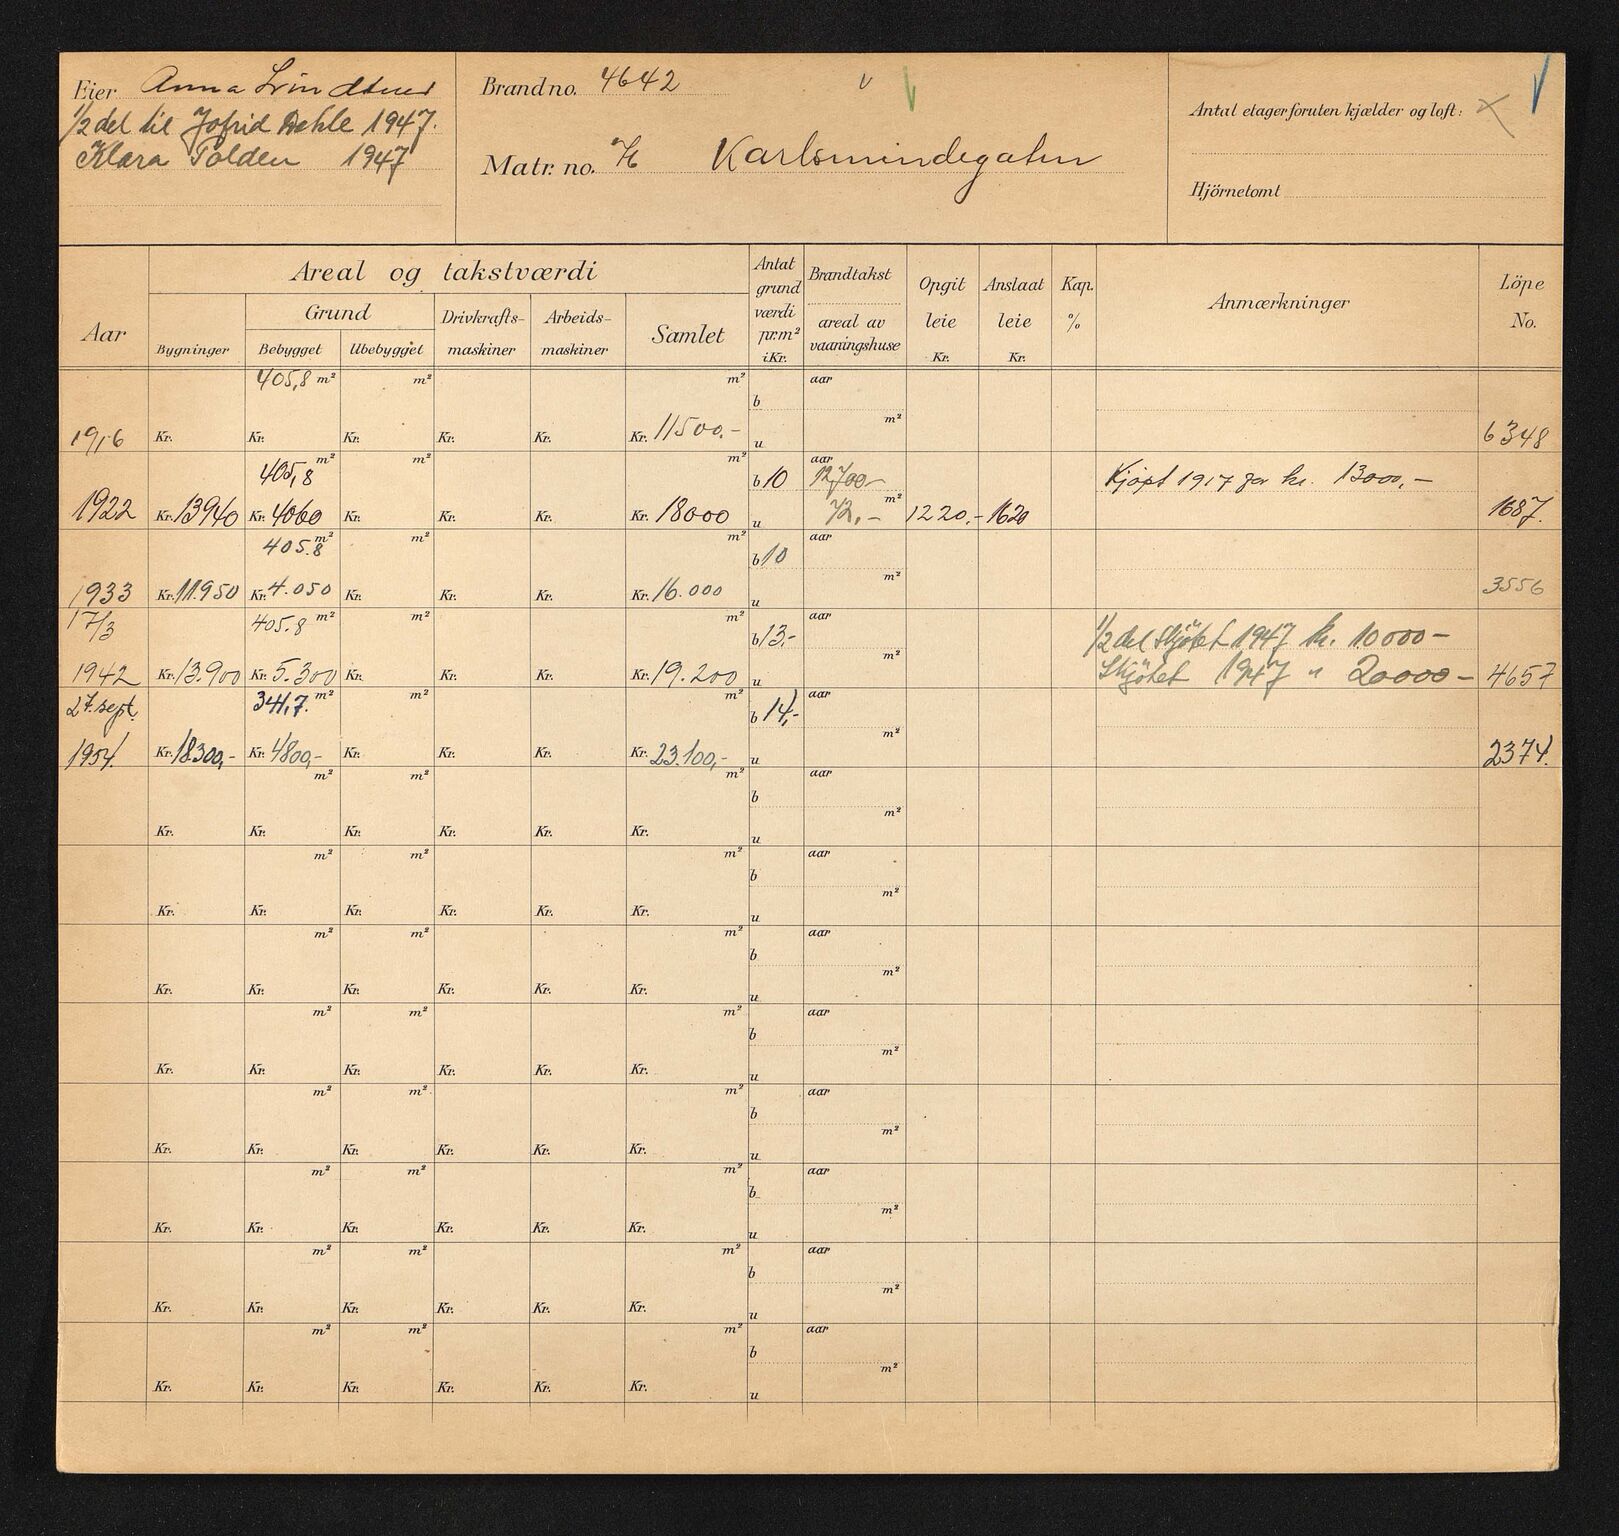 Eier Anna
1/2 del til Jofrid Dehle 1947.
Klara Tolden 1947
Brand no. 4642
Matr. no. Karlsmindegaten
Antal etager foruten kjælder og loft:
Hjörnetomt
Aar
Areal og takstværdi
Grund
Bygninger Bebygget Ubebygget Drivkrafts-maskiner Arbeids-maskiner Samlet
Antat grund værdi pr. m² i Kr.
Brandtakst
areal av vaaningshuse
Opgit leie Kr.
Anslaat leie Kr.
Kap. %
Anmærkninger
Löpe No.
405,8 m² m² m² aar
b
m²
1916 Kr. Kr. Kr. Kr. Kr. Kr. 11500,- u 6348
405,8 m² m² m² b 10 aar 12700,- Kjöpt 1917 for kr. 13000,-
1922 Kr. 13940 Kr. 4060 Kr. Kr. Kr. Kr. 18000 u 72,- m² 1220,- 1620 1687.
405.8 m² m² m² b 10 aar
m²
1933 Kr. 11.950 Kr. 4.050 Kr. Kr. Kr. Kr. 16.000 u 3556
17/3 405.8 m² m² m² b 13,- aar 1/2 del Skjötet 1947 kr. 10000-
1942 Kr. 13.900 Kr. 5.300 Kr. Kr. Kr. Kr. 19.200 u m² Skjötet 1947 " 20000- 4657
27. sept. 341,7 m² m² m² b 14,- aar
m²
1954. Kr. 18300,- Kr. 4800,- Kr. Kr. Kr. Kr. 23.100,- u 2374.
m² m² m² aar
b
m²
Kr. Kr. Kr. Kr. Kr. Kr. u
m² m² m² aar
b
m²
Kr. Kr. Kr. Kr. Kr. Kr. u
m² m² m² aar
b
m²
Kr. Kr. Kr. Kr. Kr. Kr. u
m² m² m² aar
b
m²
Kr. Kr. Kr. Kr. Kr. Kr. u
m² m² m² aar
b
m²
Kr. Kr. Kr. Kr. Kr. Kr. u
m² m² m² aar
b
m²
Kr. Kr. Kr. Kr. Kr. Kr. u
m² m² m² aar
b
m²
Kr. Kr. Kr. Kr. Kr. Kr. u
m² m² m² aar
b
m²
Kr. Kr. Kr. Kr. Kr. Kr. u